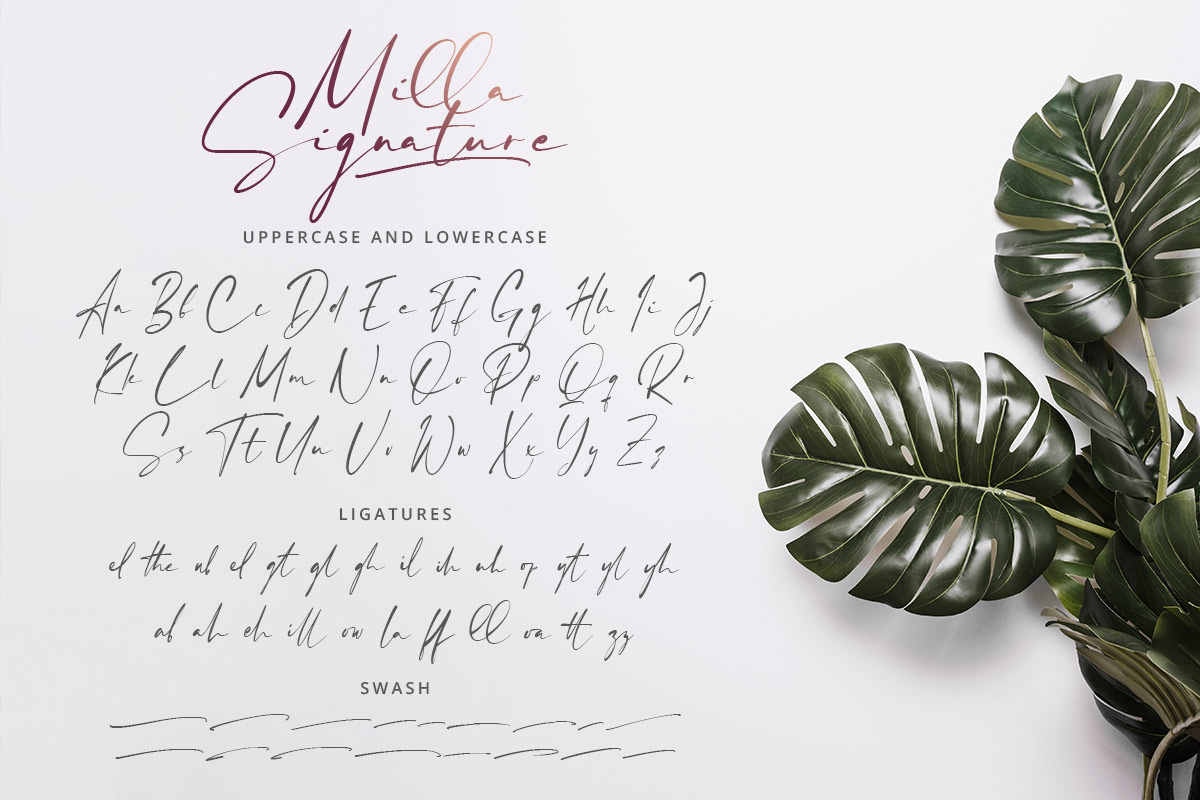 Milla
Signature
UPPERCASE AND LOWERCASE
Aa Bb Cc Dd Ee Ff Gg Hh Ii Jj
Kk Ll Mm Nn Oo Pp Qq Rr
Ss Tt Uu Vv Ww Xx Yy Zz
LIGATURES
el the ub el gt gl gh il ih uh or yt yl yh
ab ah eh ill ow la ff ll oa tt zz
SWASH